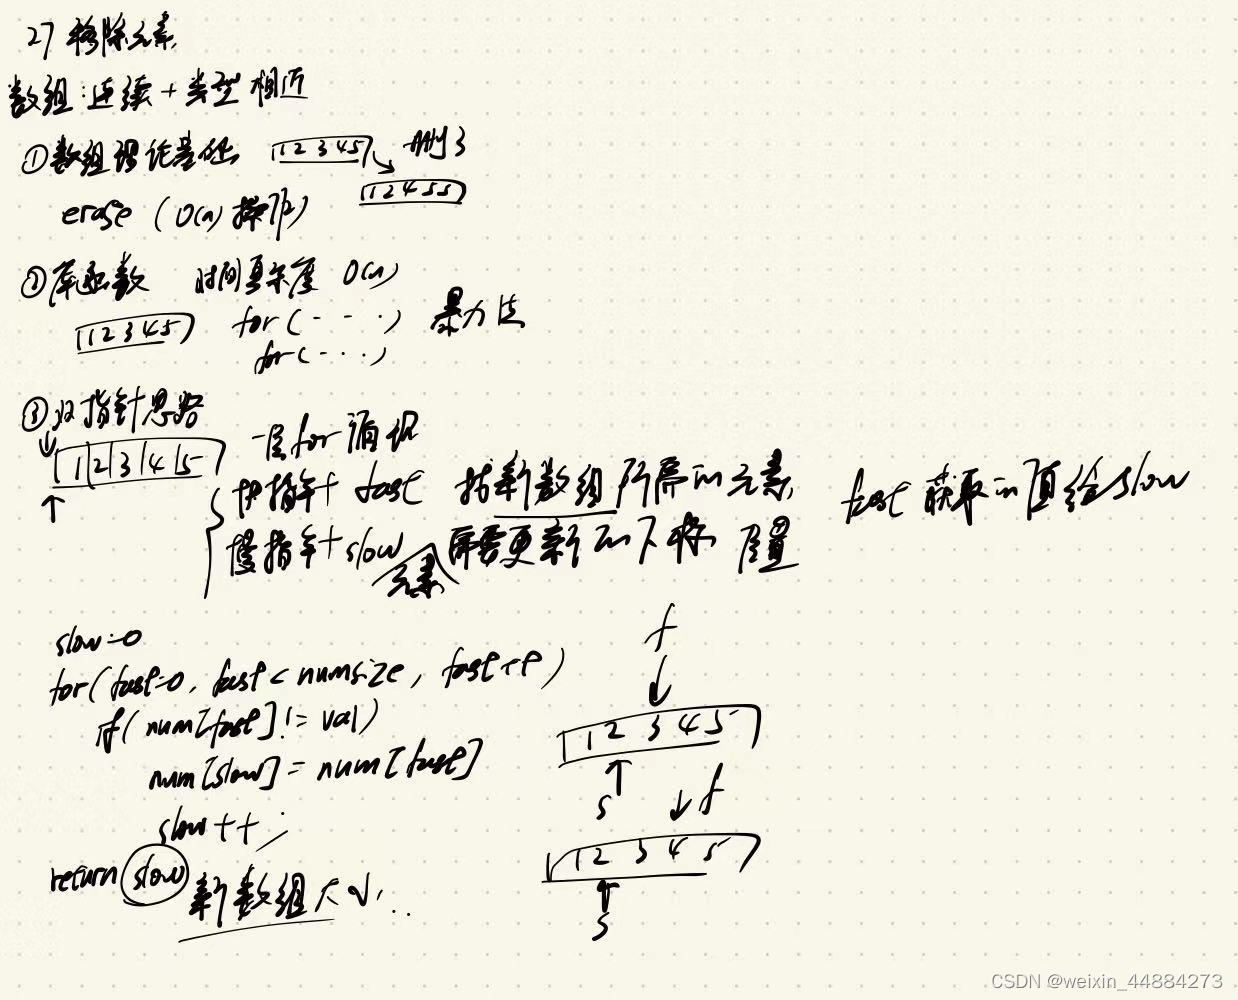 27 移除元素
数组:连续+类型相近
①数组理论基础 1 2 3 4 5 删3
1 2 4 5 5
erase (O(n)操作)
②库函数 时间复杂度 O(n)
1 2 3 4 5 for(- - ·) 暴力法
for(- · · ·)
③双指针思路
1 2 3 4 5 一层for循环
快指针 fast 找新数组所需的元素 fast 获取的值给slow
慢指针 slow 需要更新的下标位置
元素
slow=0
for(fast=0, fast<numsize, fast++) f
if(num[fast]!=val) 1 2 3 4 5
num[slow]=num[fast]
s f
slow++;
1 2 3 4 5
return slow 新数组大小..
s
CSDN @weixin_44884273